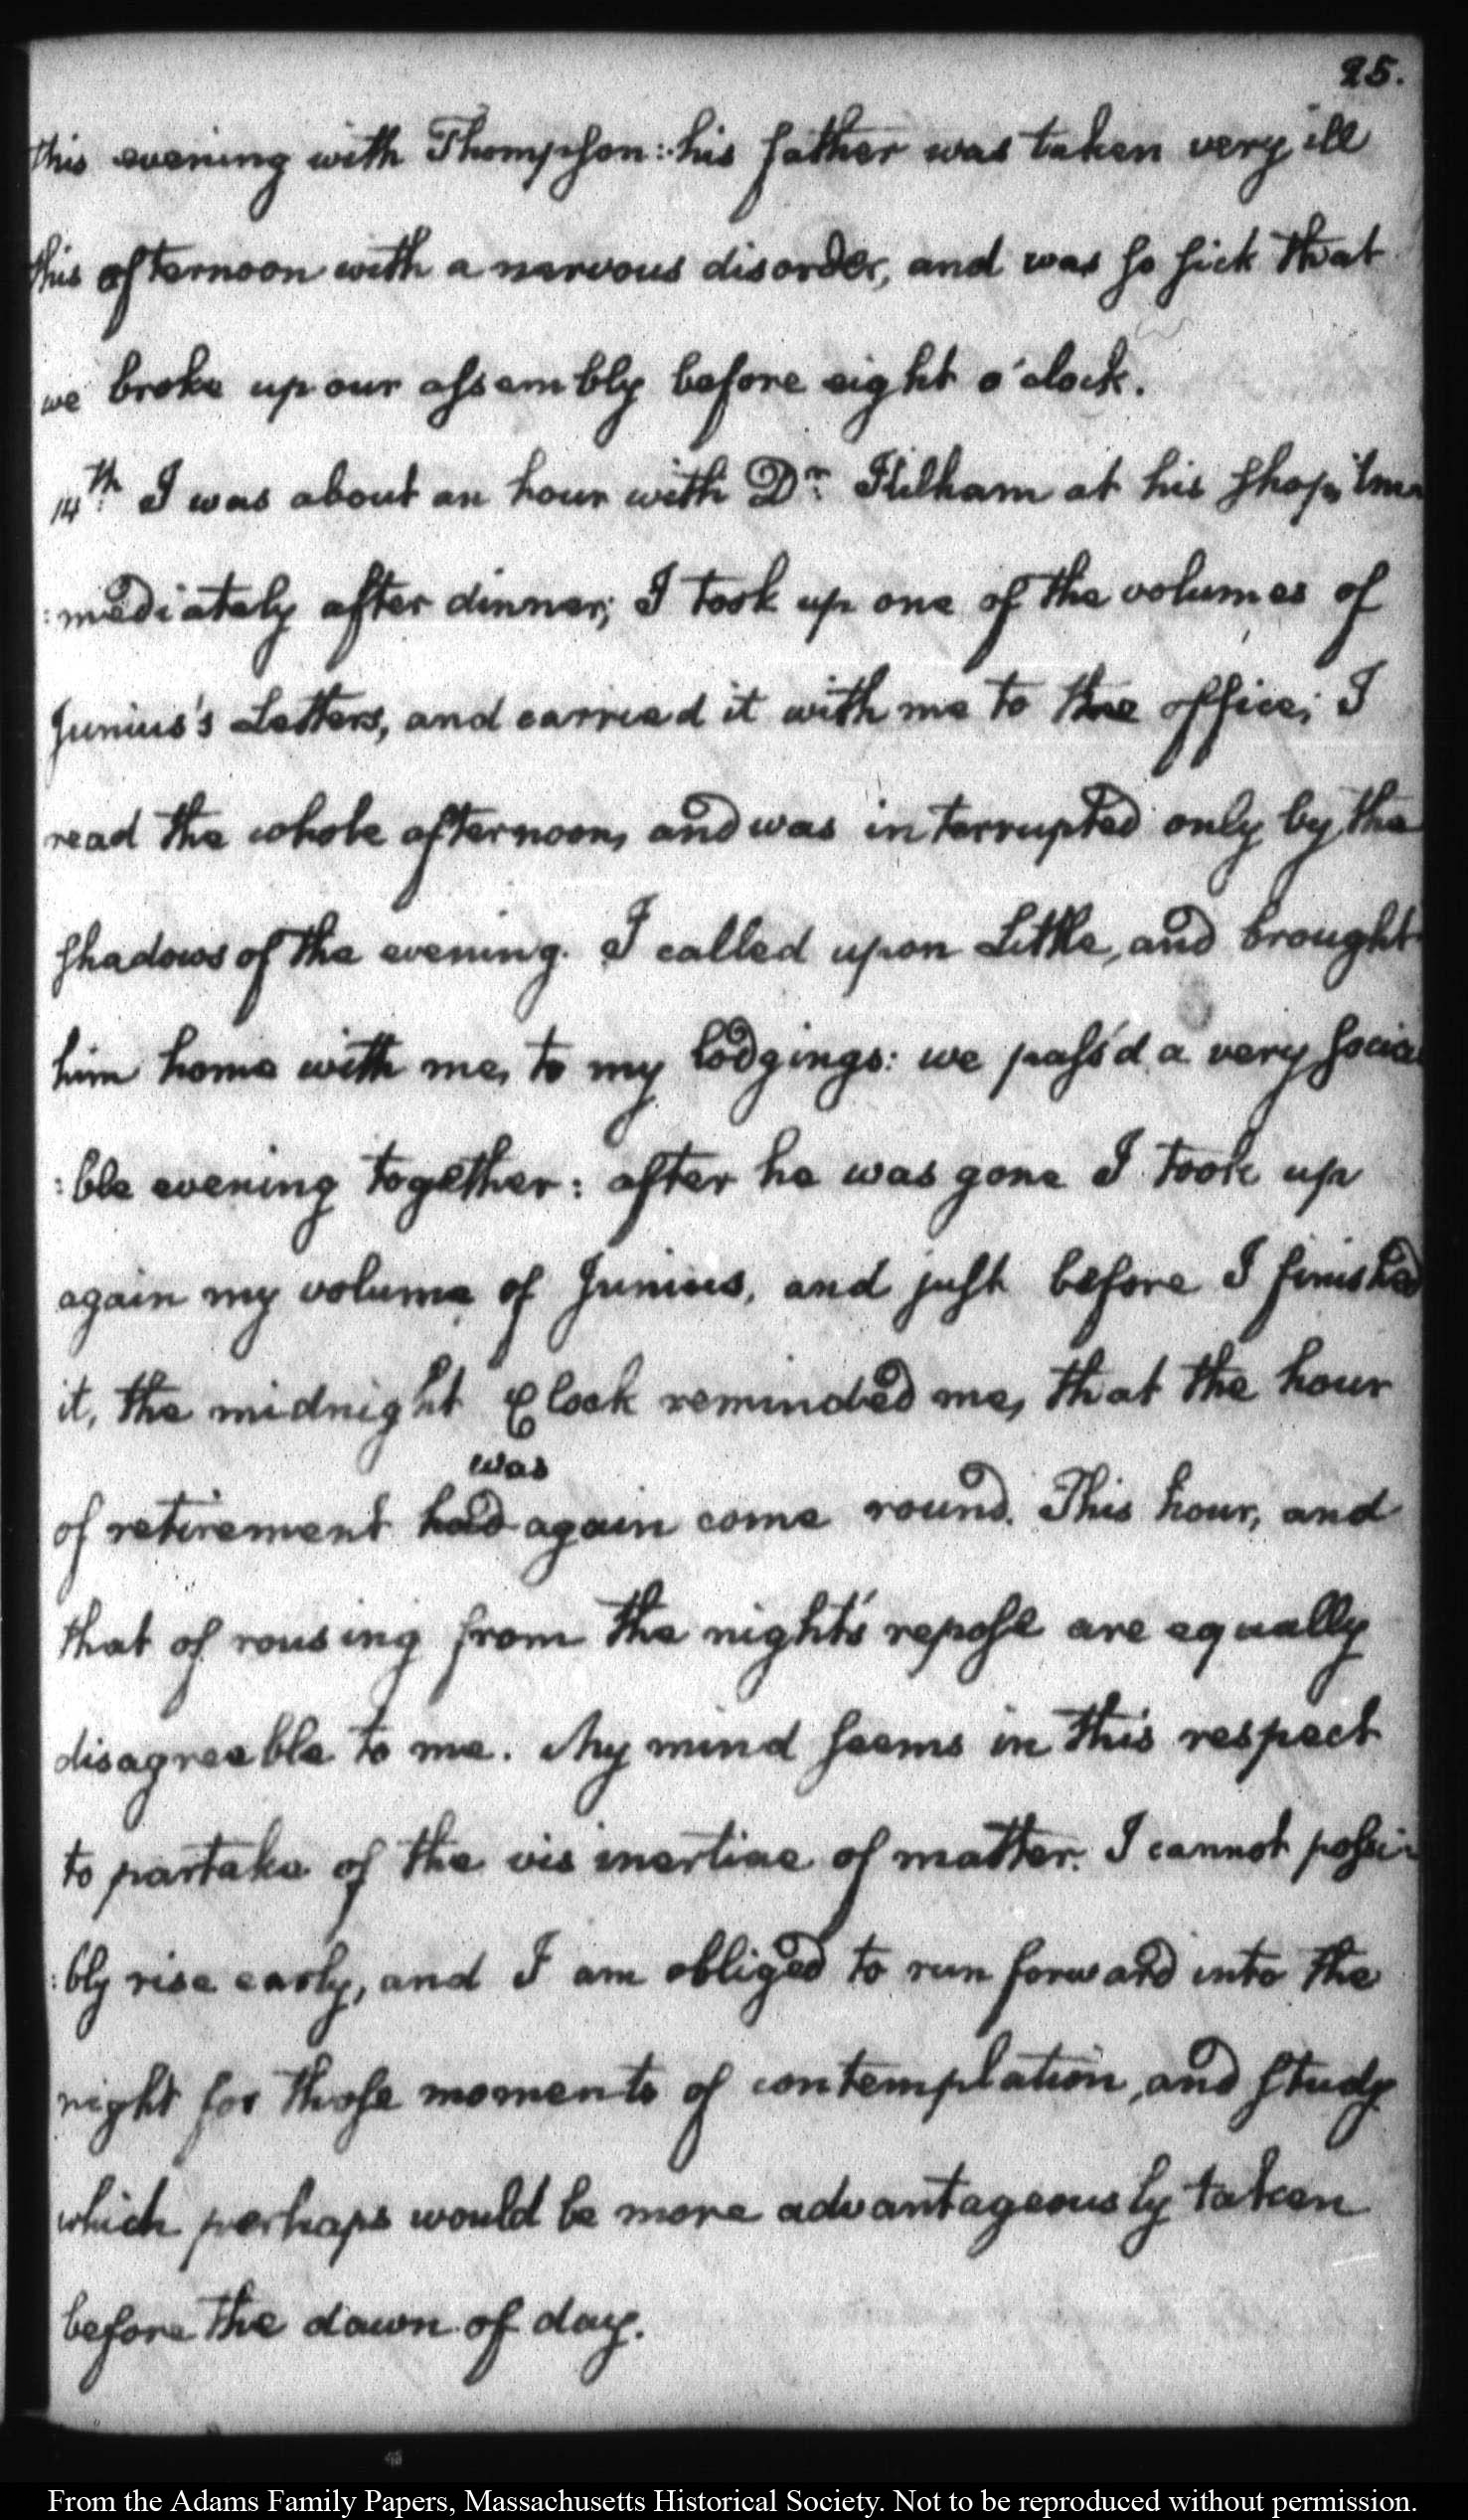 25.
this evening with Thompson: his father was taken very ill
this afternoon with a nervous disorder, and was so sick that
we broke up our assembly before eight o'clock.
14th. I was about an hour with Dr. Kilham at his shop, im-
:mediately after dinner; I took up one of the volumes of
Junius's Letters, and carried it with me to the office; I
read the whole afternoon, and was interrupted only by the
shadows of the evening. I called upon Little, and brought
him home with me, to my lodgings: we pass'd a very socia
:ble evening together: after he was gone I took up
again my volume of Junius, and just before I finished
it, the midnight Clock reminded me, that the hour
was
of retirement had again come round. This hour, and
that of rousing from the night's repose are equally
disagreeable to me. My mind seems in this respect
to partake of the vis inertiae of matter. I cannot possi-
:bly rise early, and I am obliged to run forward into the
night for those moments of contemplation, and study
which perhaps would be more advantageously taken
before the dawn of day.
From the Adams Family Papers, Massachusetts Historical Society. Not to be reproduced without permission.